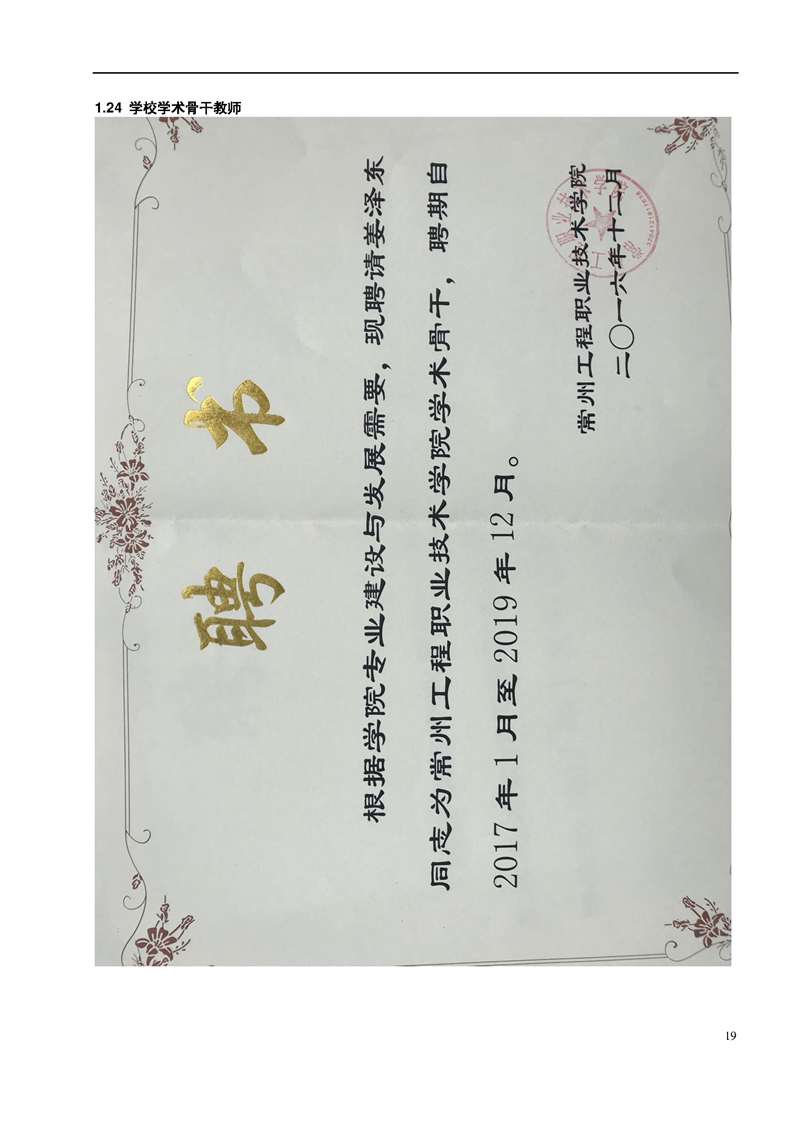 1.24 学校学术骨干教师
聘书
根据学院专业建设与发展需要，现聘请姜泽东
同志为常州工程职业技术学院学术骨干，聘期自
2017年1月至2019年12月。
常州工程职业技术学院
二〇一六年十二月
19